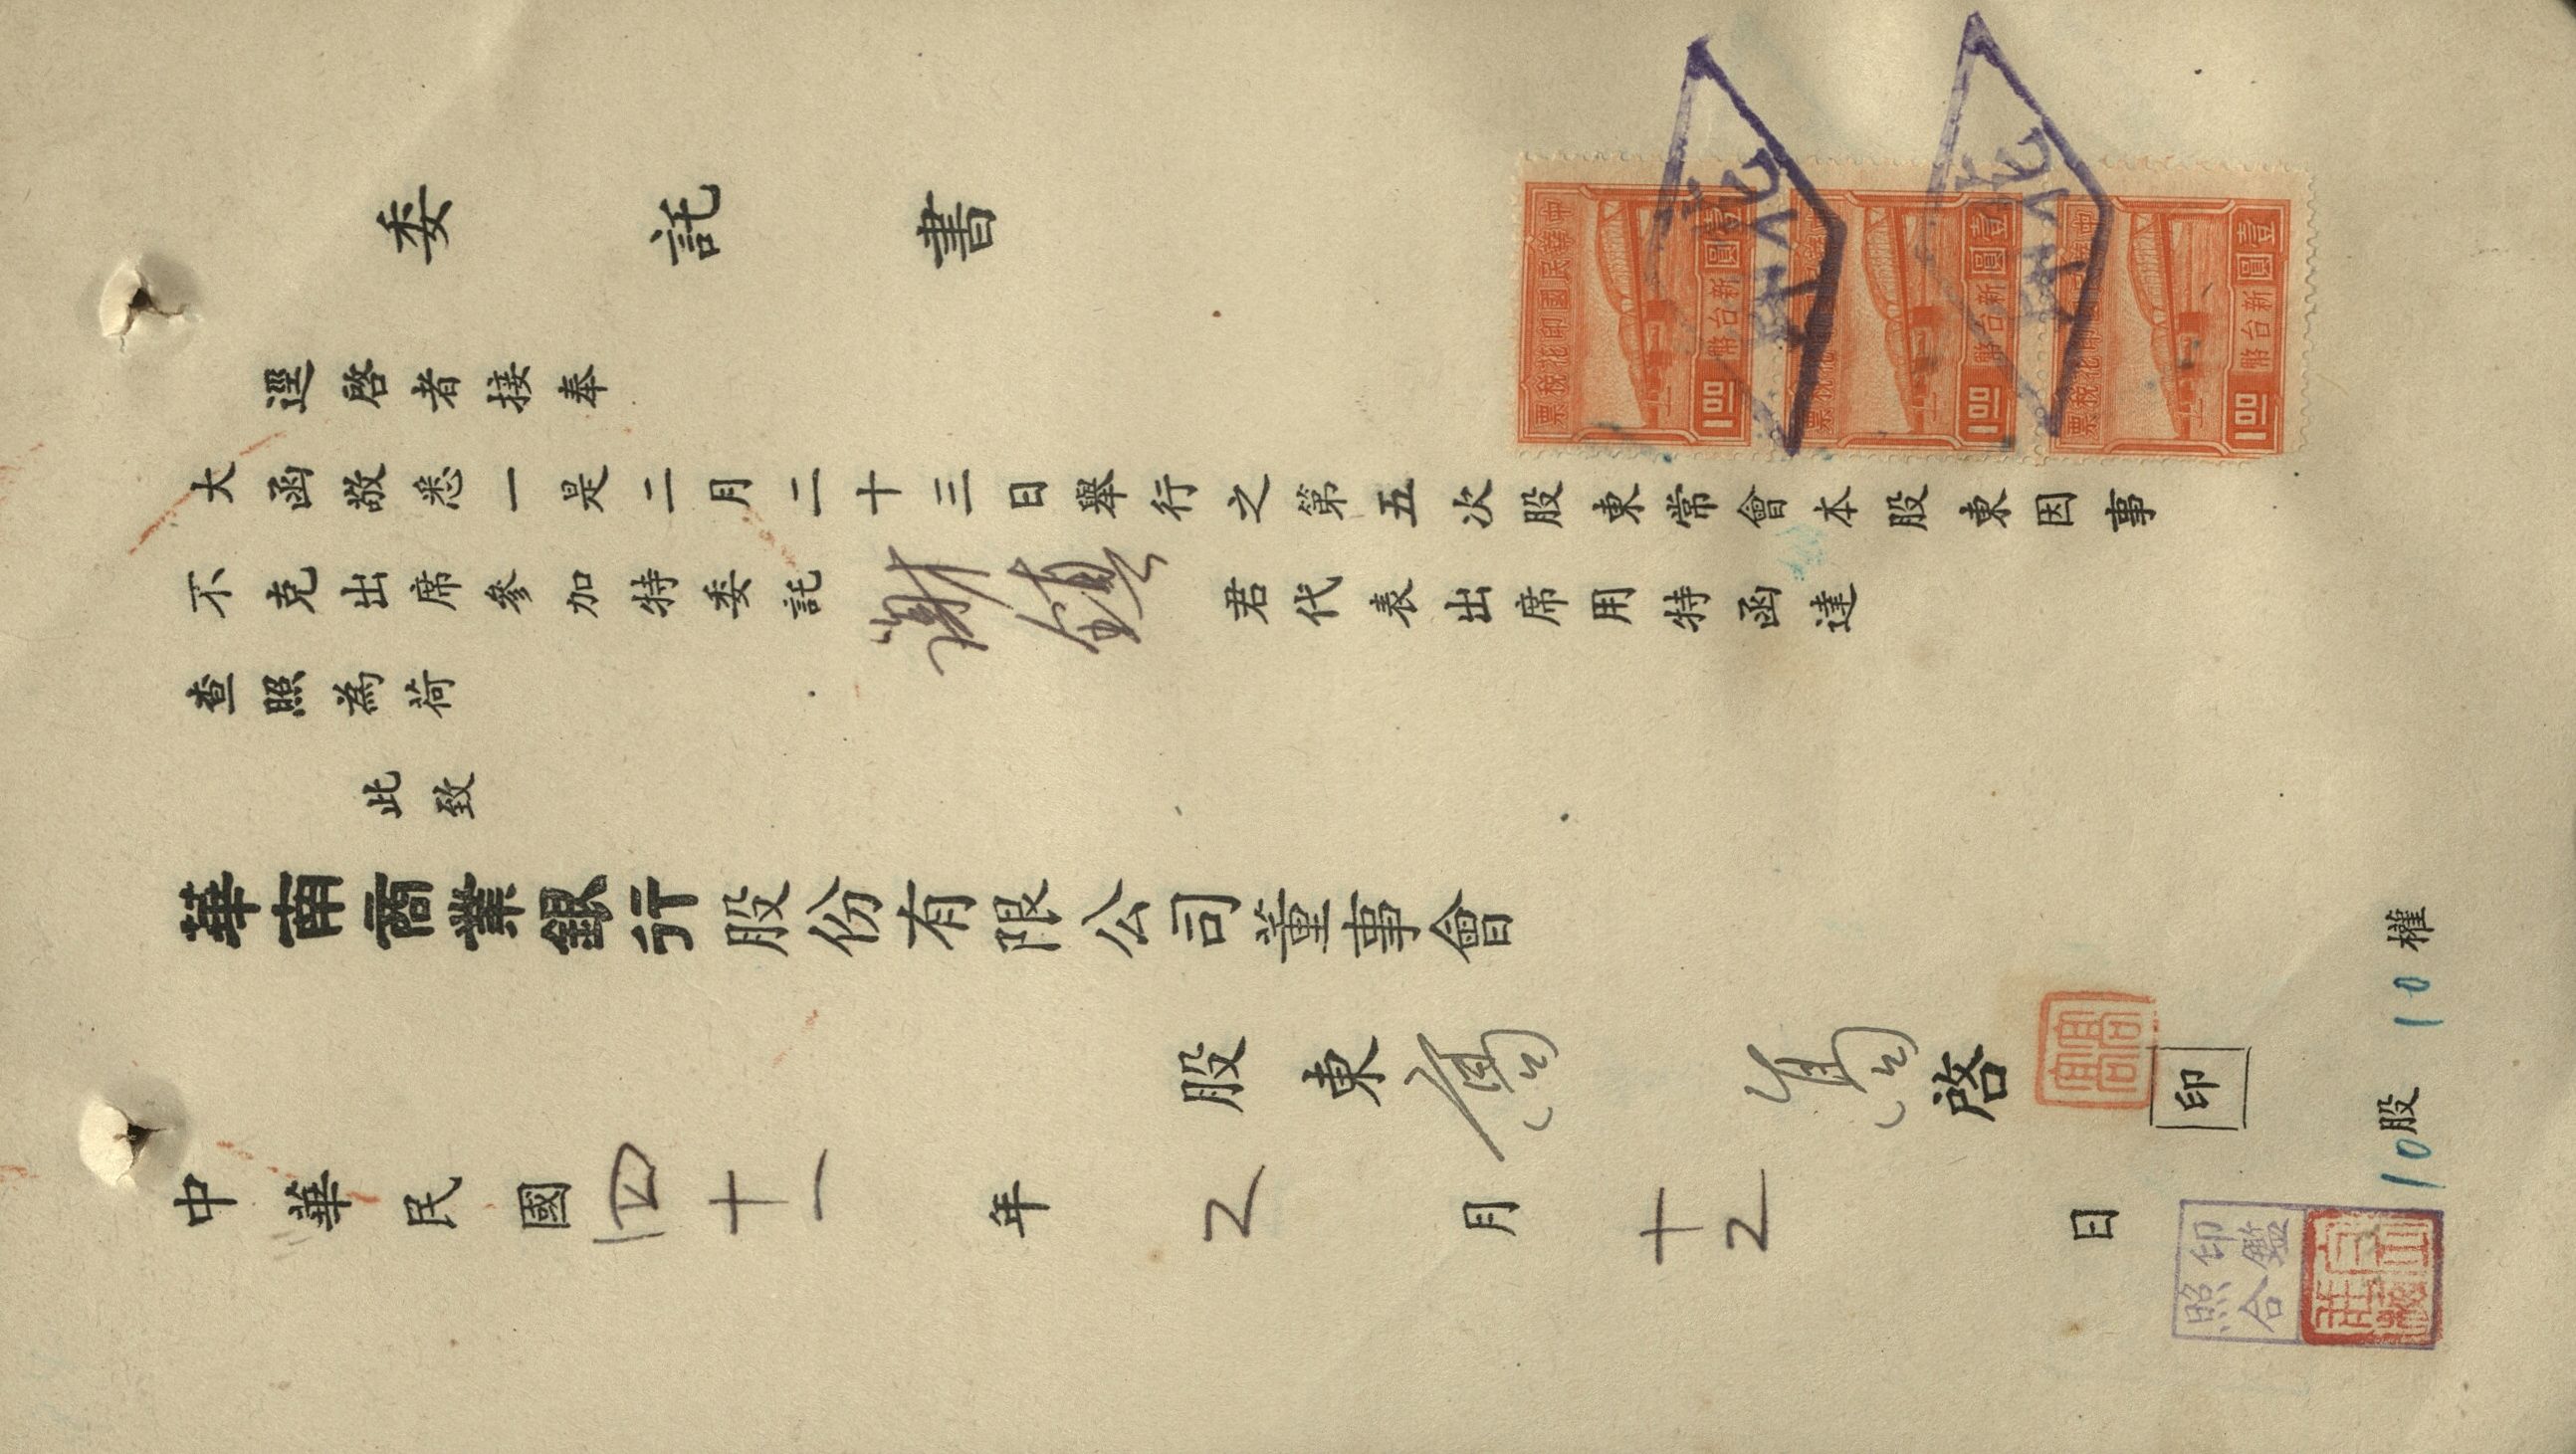 委託書
逕啓者接奉
大函敬悉一是二月二十三日舉行之第五次股東常會本股東因事
不克出席參加特委託謝鎮君代表出席用特函達
查照為荷
此致
華南商業銀行股份有限公司董事會
股東 啓 印
中華民國四十一年2月十2日
10股 10權
印鑑
照合
中華民國印花稅票
壹圓
新台幣
1.00
壹圓
新台幣
1.00
壹圓
新台幣
1.00